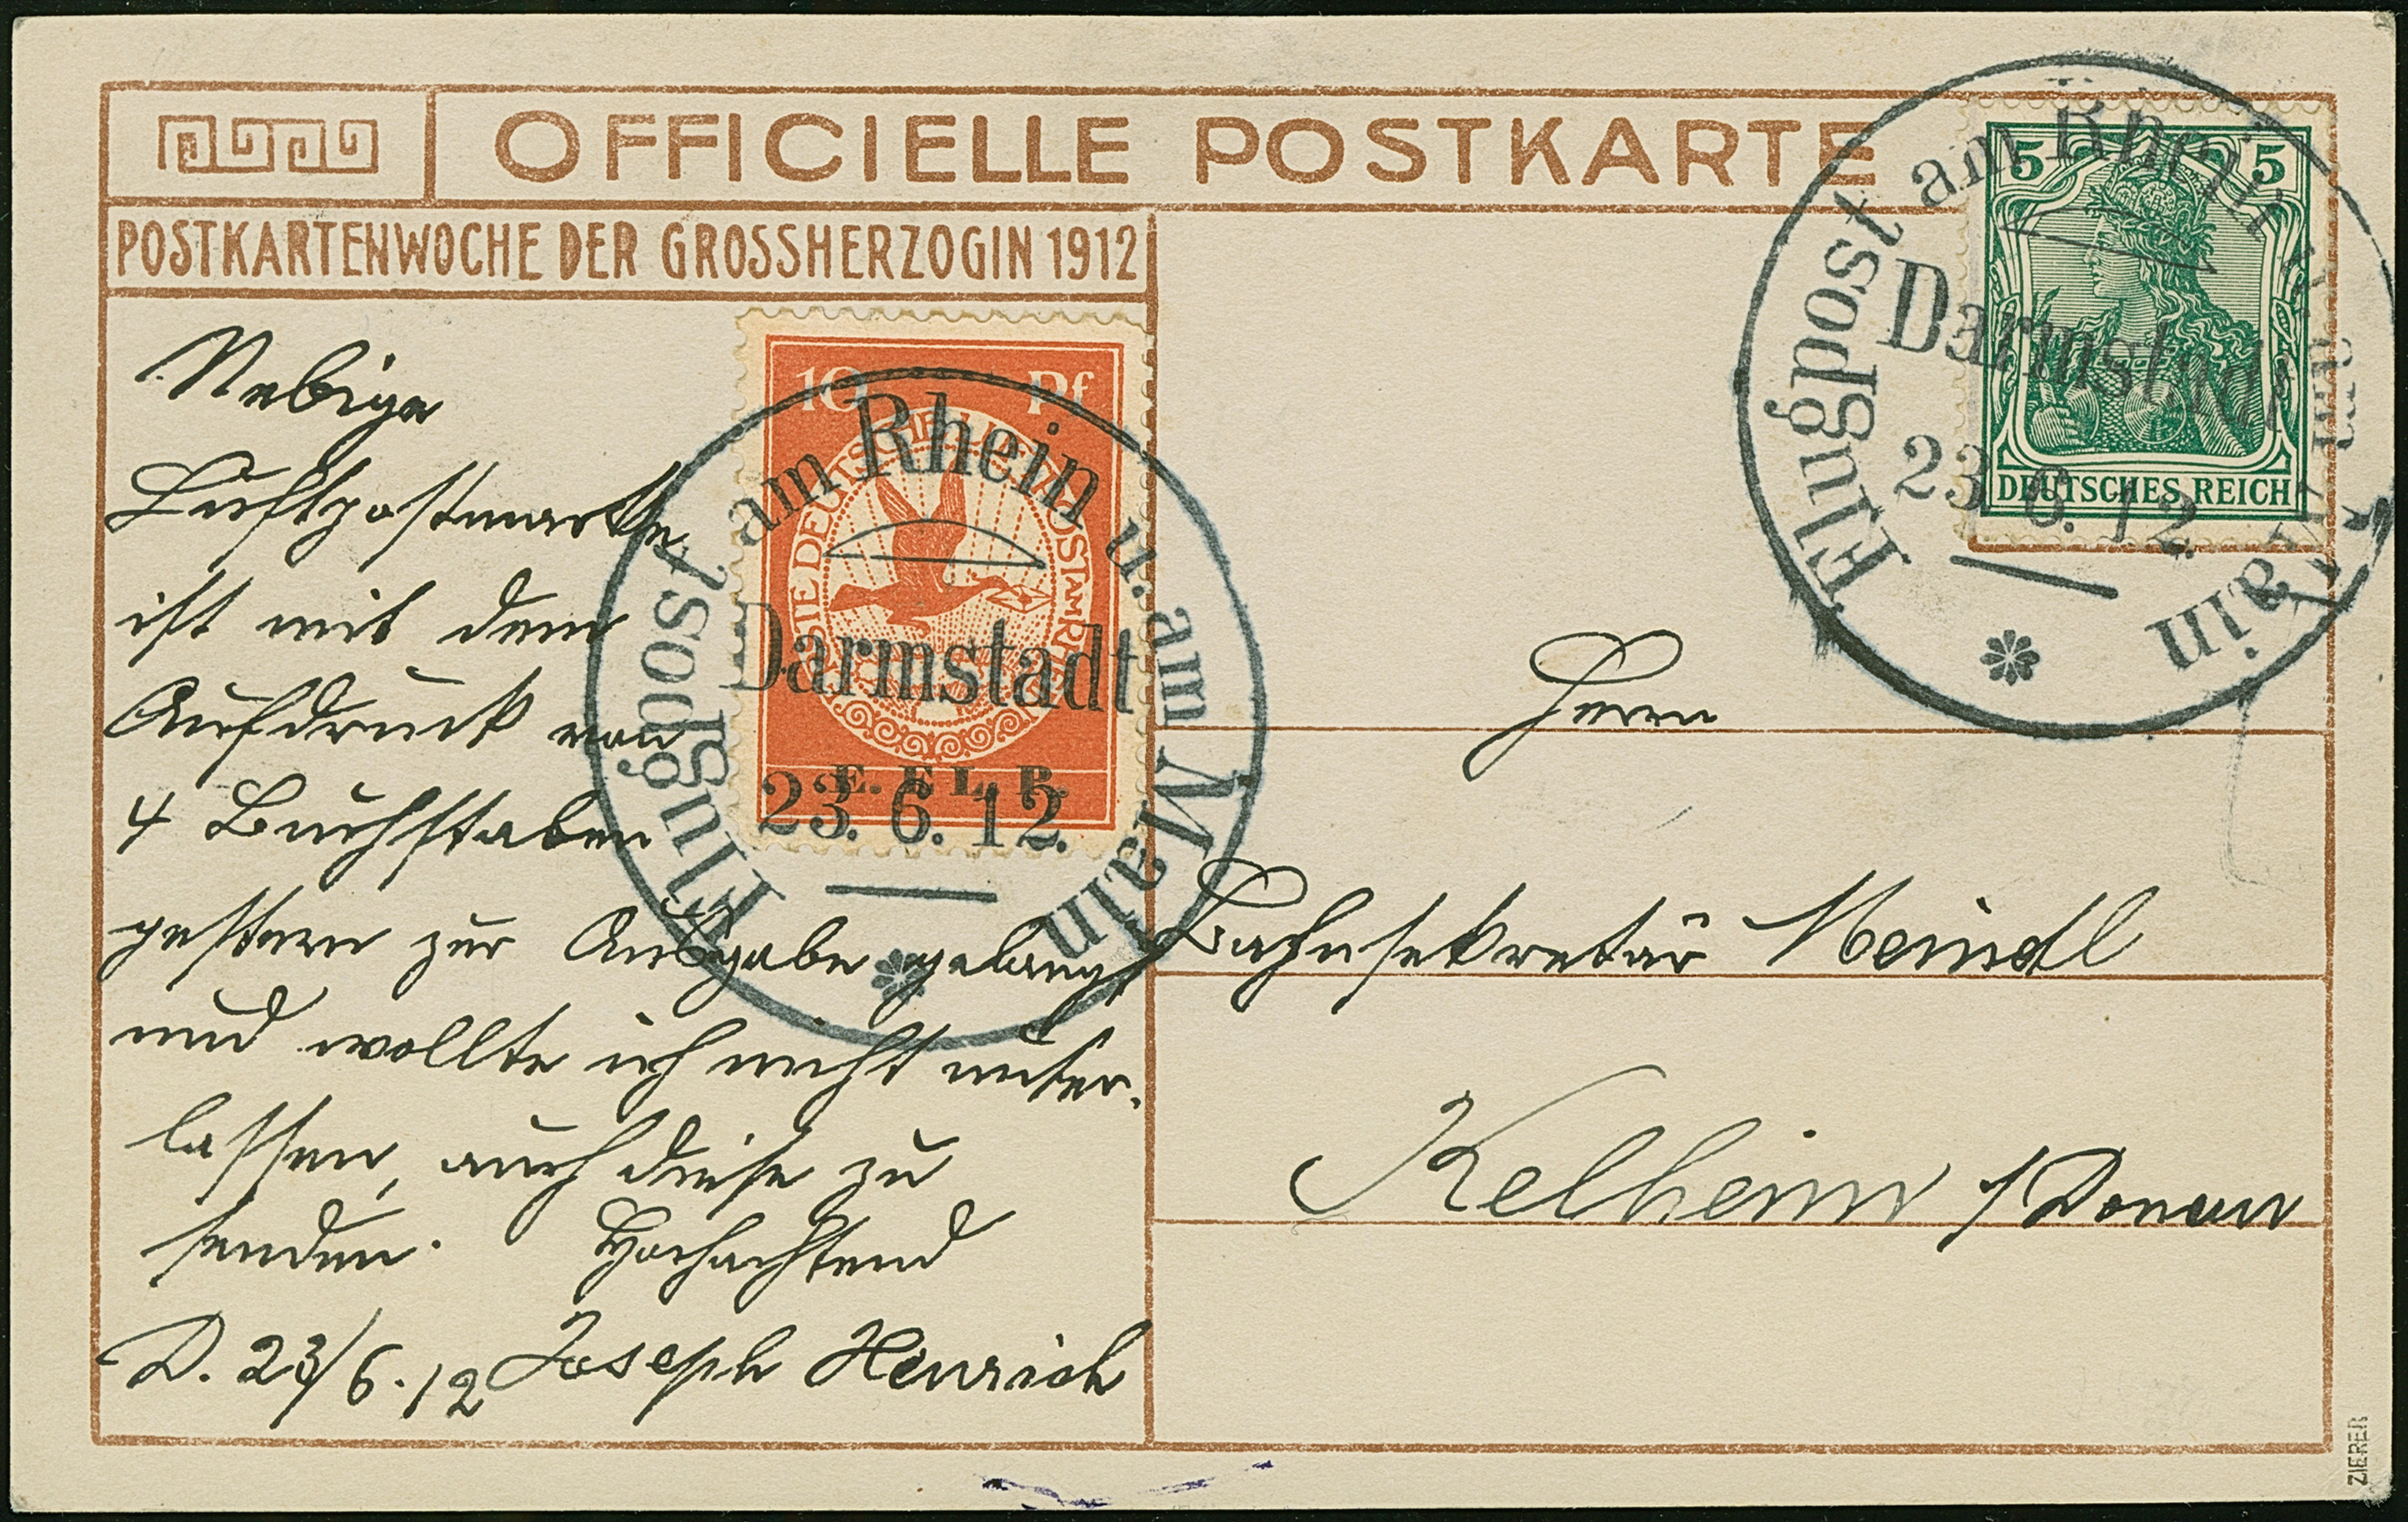 OFFICIELLE POSTKARTE
POSTKARTENWOCHE DER GROSSHERZOGIN 1912
Nebige
Luftpostmarke
ist mit dem
Aufdruck von
4 Buchstaben
gestern zur Ausgabe gelangt
und wollte ich nicht unter-
lassen, auch diese zu
senden. Hochachtend
D. 23/6.12 Joseph Henrich
10 Pf
E. E. L. P.
Flugpost am Rhein u. am Main
Darmstadt
23. 6. 12.
5 5
DEUTSCHES REICH
Flugpost am Rhein u. am Main
Darmstadt
23. 6. 12.
Herrn
Bahnsekretär Meindl
Kelheim /Donau
ZIERER